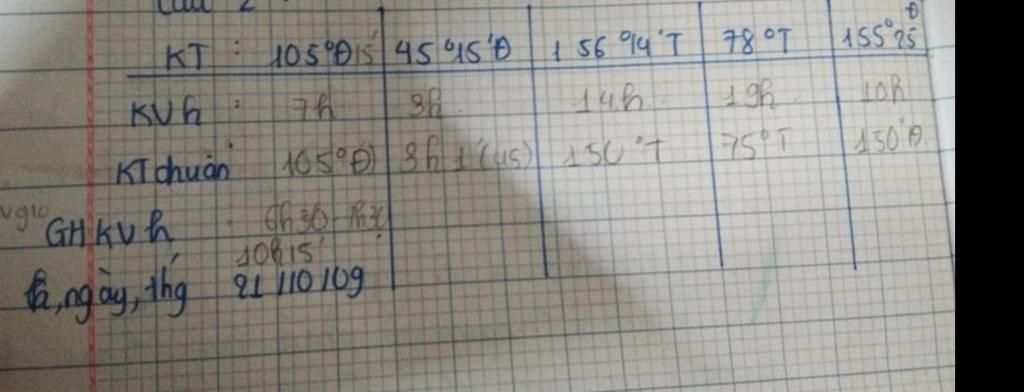 Câu 2
KT : 105°Đ15' 45°15'Đ 156°14'T 78°T 155°25'Đ
KVh : 7h 3h 14h 19h 10h
KT chuẩn 105°Đ 3h 1(45) 150°T 75°T 150°Đ
GHKVh : 6h30 -
10h15'
h, ngày, thg 21/10/09